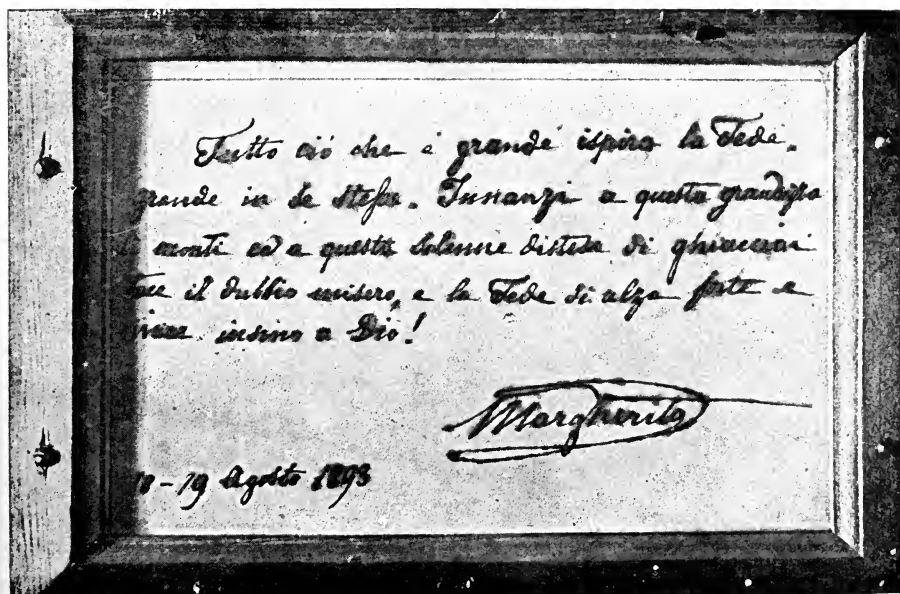 Tutto ciò che è grande ispira la Fede.
grande in se stessa. Innanzi a questa grandezza
monti ed a questa solenne distesa di ghiacciai
tace il dubbio misero, e la Fede si alza forte e
vivace insino a Dio!
Margherita
18-19 Agosto 1893